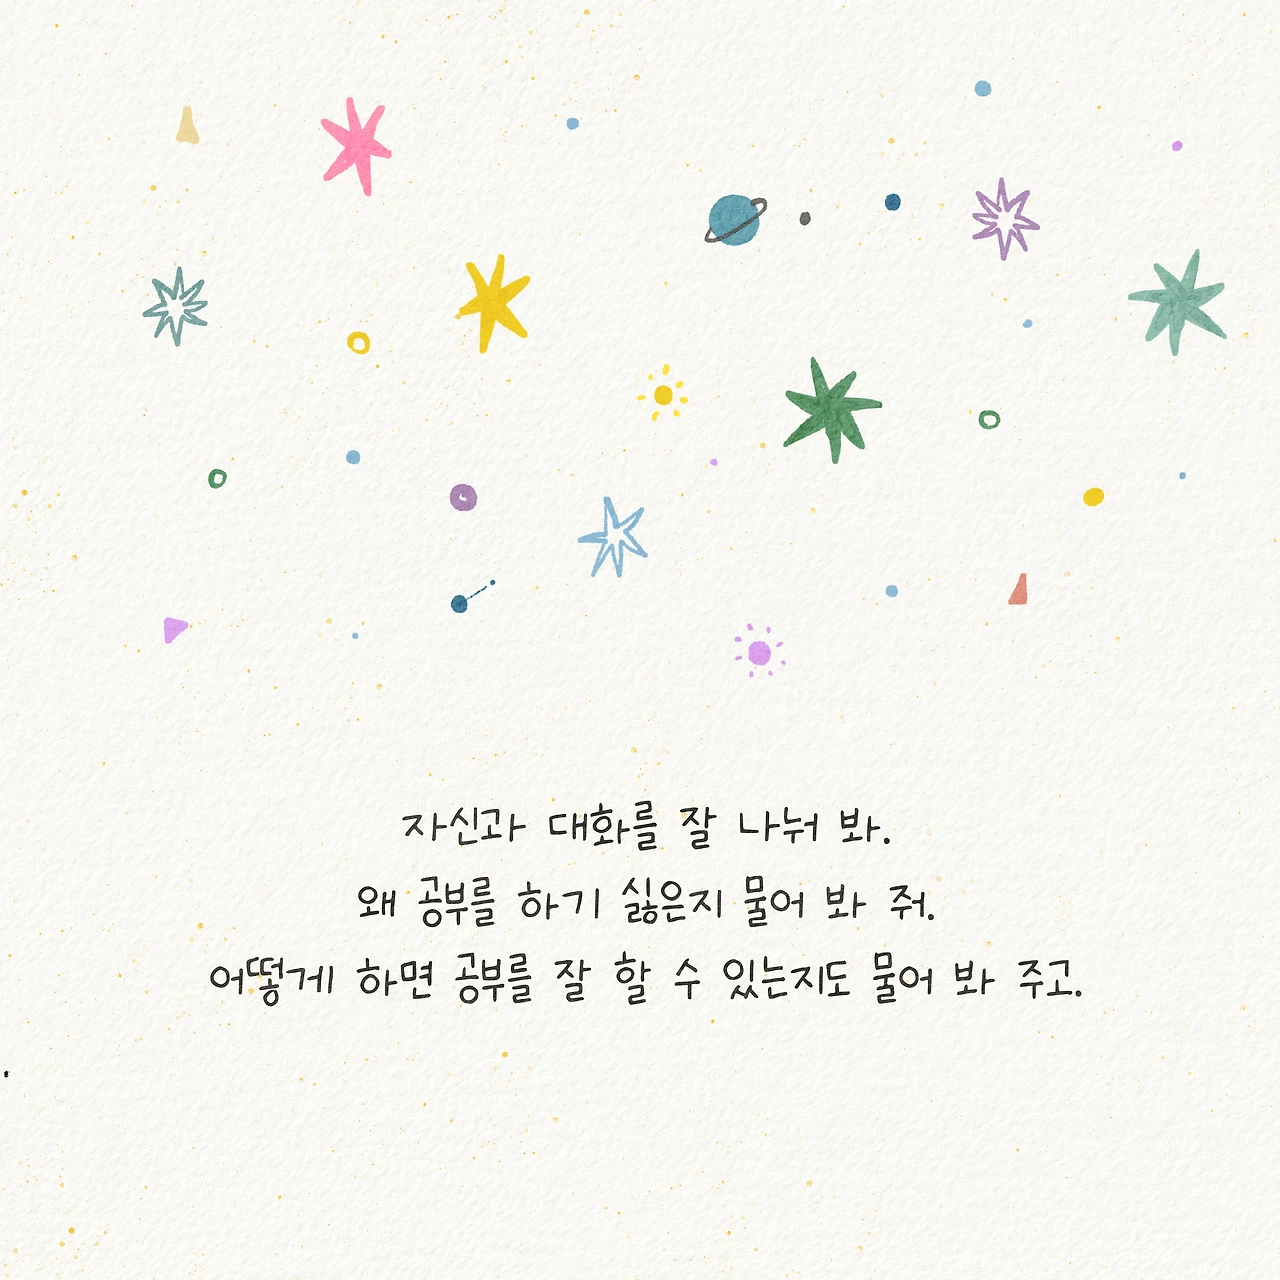 자신과 대화를 잘 나눠 봐.
왜 공부를 하기 싫은지 물어 봐 줘.
어떻게 하면 공부를 잘 할 수 있는지도 물어 봐 주고.